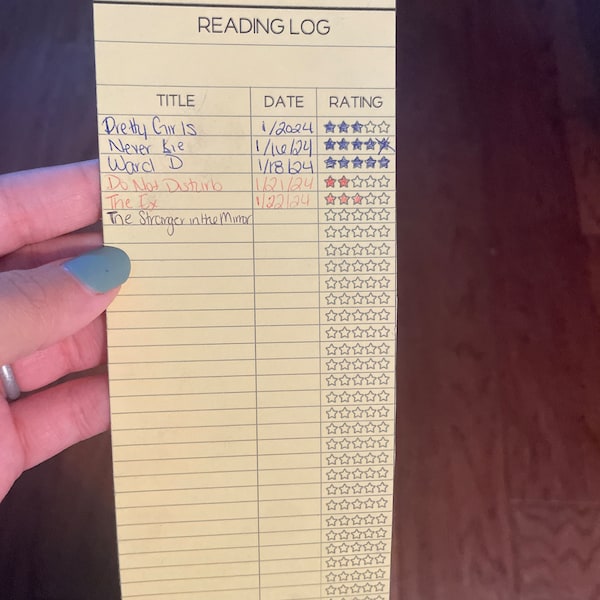 READING LOG
TITLE DATE RATING
Pretty Girls 1/2024
Never Lie 1/16/24
Ward D 1/18/24
Do Not Disturb 1/21/24
The Ex 1/22/24
The Stranger in the Mirror